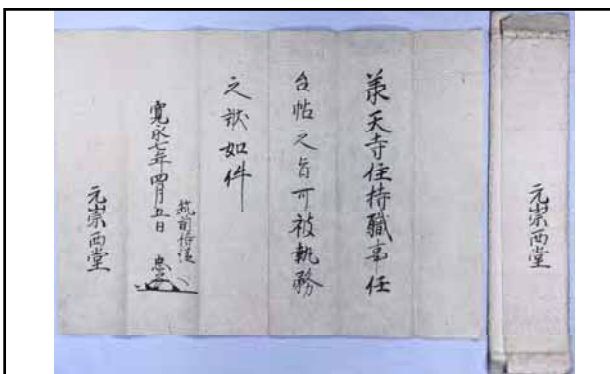 承天寺住持職事任
台帖之旨可被執務
之状如件
寛永七年四月五日
筑前侍従 忠之
元崇西堂
元崇西堂